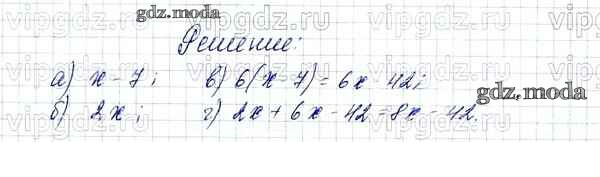 vipgdz.ru vipgdz.ru vipgdz.ru vipgdz.ru
gdz.moda
Решение:
а) x - 7; в) 6(x - 7) = 6x - 42;
gdz.moda
б) 2x; г) 2x + 6x - 42 = 8x - 42.
vipgdz.ru vipgdz.ru vipgdz.ru vipgdz.ru
gdz.moda